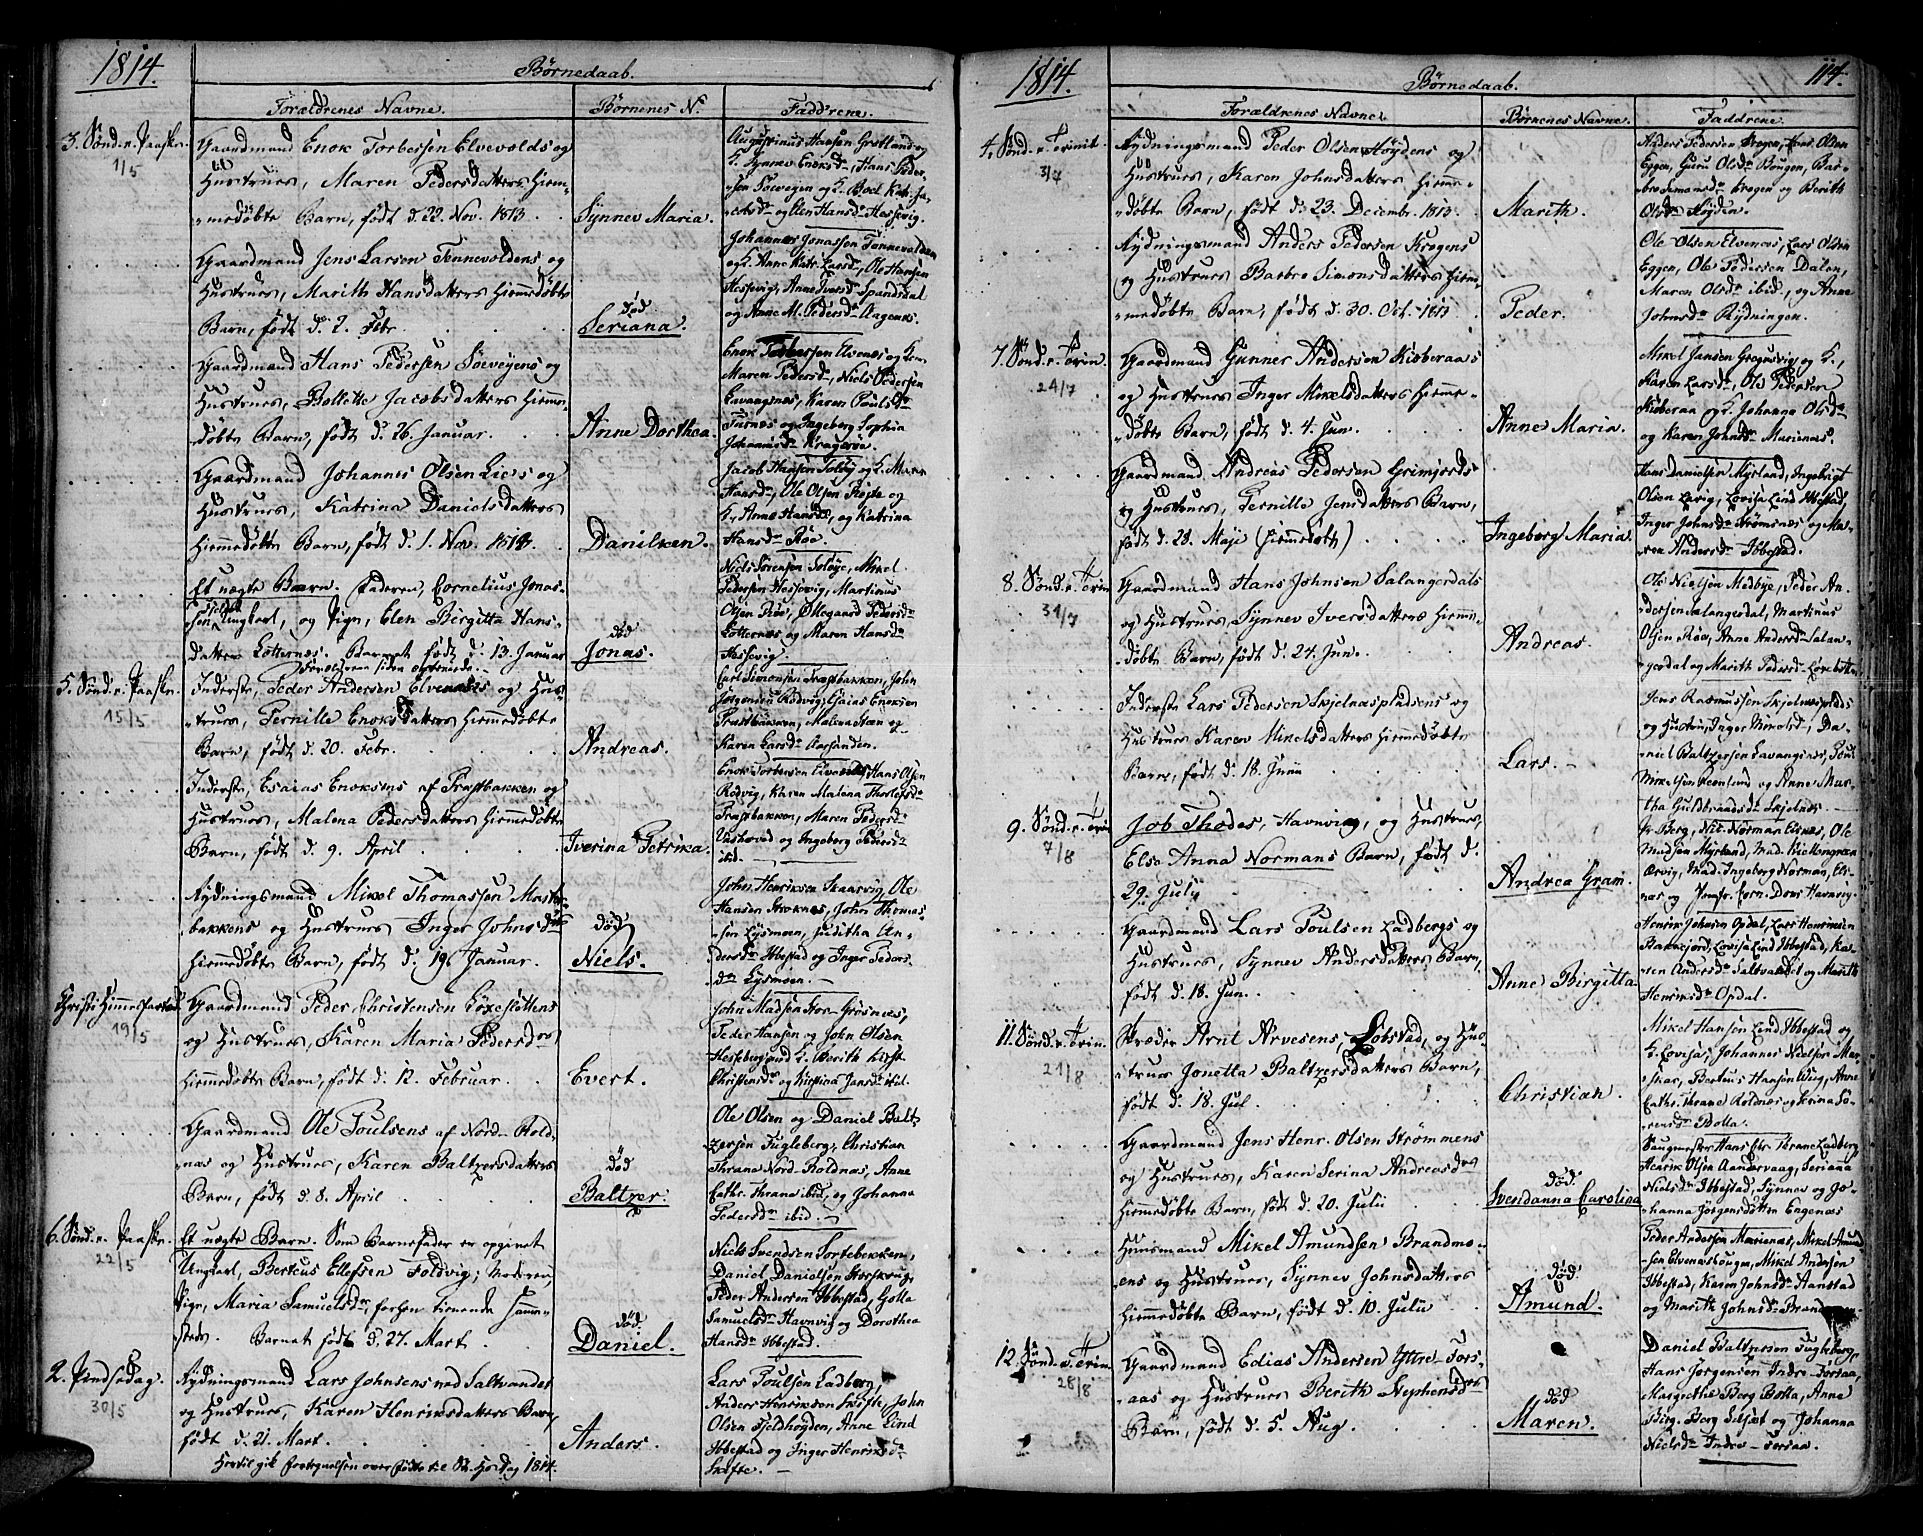 1814.
Børnedaab.
Forældrenes Navne.
Børnenes N.
Faddrene.
3. Sønd. e. Paaske
1/5
Gaardmand Enok Torbersen Elvevolds og
Hustrues, Maren Pedersdatters hiem-
medøbte Barn, født d. 22. Nov. 1813.
Synnev Maria.
Augustinus Hansen Grøtland og
H. Synnev Enoksd., Hans Peder-
sen Søeveyen og H. Boel Katr. Ja-
cobsd. og Elen Hansd. Hessevig.
Gaardmand Jens Larsen Tennevoldens og
Hustrues, Marith Hansdatters hiemmedøbte
Barn, født d. 2. Febr.
død
Seriana.
Johannes Jonassen Tennevolden
og H. Anne Katr. Larsd., Ole Hansen
Hessevig, Anne Iversd. Spandsdal
og Anne M. Pedersd. Aagenes.
Gaardmand Hans Pedersen Søeveyens og
Hustrues, Bollette Jacobsdatters hiemme-
døbte Barn, født d. 26. Januar.
Anne Dorthea.
Enok Torbersen Elvenes og H.
Maren Pedersd., Niels Pedersen
Lavangsnes, Karen Poulsd.
Turnæs og Ingeberg Sophia
Johannisd. Kragerøe.
Gaardmand Johannes Olsen Lies og
Hustrues, Katrina Danielsdatters
hiemmedøbte Barn, født d. 1. Nov. 1813.
Danilken.
Jacob Hansen Solby og H. Maren
Hansd., Ole Olsen Røste og
H. Anne Hansd., og Katrina
Hansd. Røe.
Et uægte Barn. Faderen, Cornelius Jonas-
sen Ungkarl, og Pige, Elen Birgitta Hans-
datter Lotternes. Barnet født d. 13. Januar
død
Jonas.
Niels Sørensen Soløye, Mikel
Pedersen Hessevig, Martinus
Olsen Røe, Øllegaard Pedersd.
Lotternes og Maren Hansd.
Hessevig.
5. Sønd. e. Paaske
15/5
Forældrene siden egteviede.
Inderste, Peder Andersen Elvenæs og Hus-
trues, Pernille Enoksdatters hiemmedøbte
Barn, født d. 20. Febr.
Andreas.
Carl Simonsen Præstbakken, John
Jørgensen Rødvig, Esaias Enoksen
Præstbakken, Malena Steen og
Karen Larsd. Aarsanden.
Inderste, Esaias Enoksens af Præstbakken og
Hustrues, Malena Pedersdatters hiemmedøbte
Barn, født d. 9. April
Iverina Petrika.
Enok Torbersen Elvenes, Hans Olsen
Rødvig, Karen Malena Thorlefsd.
Præstbakken, Maren Pedersd.
og Ingeberg Pedersd.
ibid.
Rydningsmand Mikel Thomassen Mostke-
bakkens og Hustrues Inger Johnsd.
hiemmedøbte Barn, født d. 19. Januar.
død
Niels.
John Henriksen Skaarvig, Ole
Hansen Stroknes, John Thomas-
sen Lysmoen, Juditha An-
dersd. Ibbestad og Inger Peders-
d. Lysmoen.
Christi Himmelfartsd.
19/5
Gaardmand Peder Christensen Løxesletttens
og Hustrues, Karen Maria Pedersd.
hiemmedøbte Barn, født d. 12. Februar.
Evert.
John Madsen Stor-Grøsnes,
Peder Hansen og John Olsen
Hesseberg, og H. Berith Kirst.
Christensd. og Kirstina Jensd. ibid.
Gaardmand Ole Poulsens af Nord-Rold-
nas og Hustrues, Karen Baltzersdatters
Barn, født d. 8. April
død
Baltzer.
Ole Olsen og Daniel Balt-
zersen Fugleberg, Christian
Thrane Nord-Roldnæs, Anne
Cathr. Thrane ibid, og Johanna
Pedersd. ibid.
6. Sønd. e. Paaske.
22/5
Et uægte Barn. Som Barnefader er opgivet
Ungkarl, Berteus Ellefsen Foldvig; Moderen
Pige, Maria Samuelsd., forhen tienende samme-
steds. Barnet født d. 27. Mart.
død.
Daniel.
Niels Svendsen Sortebekken,
Daniel Danielsen Storskrug,
Peder Andersen Ibbestad, Golla
Samuelsd. Havnvig og Dorothea
Hansd. Ibbestad.
2. Pindsedag.
30/5
Rydningsmand Lars Johnsens ved Saltvandet
og Hustrues, Karen Henriksdatters Barn,
født d. 21. Mart.
Anders.
Lars Poulsen Ladberg,
Anders Henriksen Skifte, John
Olsen Fieldhøyden, Anne Lind
Ibbestad og Inger Henriksd.
Skifte.
Hertil gik Fortegnelsen over fødte til St. Hs. dag 1814.
1814.
Børnedaab.
114.
Forældrenes Navne.
Børnenes Navne.
Faddrene.
4. Sønd. e. Trinit.
3/7
Rydningsmand Peder Olsen Høydens og
Hustrues, Karen Johnsdatters hiemme-
døbte Barn, født d. 23. Decembr. 1813.
Marith.
Anders Pedersen Krogen, Hans Olsen
Eggen, Guru Olsd. Bougen, Bar-
bro Simonsd. Krogen og Berith
Olsd. Høyden.
Rydningsmand Anders Pedersen Krogens
og Hustrues Barbro Simonsdatters hiem-
medøbte Barn, født d. 30. Oct. 1813
Peder.
Ole Olsen Elvenæs, Lars Olsen
Eggen, Ole Pedersen Dalen,
Maren Olsd. ibid., og Anne
Johnsd. Rydningen.
7. Sønd. e. Trin.
24/7
Gaardmand Gunner Andersen Kioberaas
og Hustrues Inger Mikelsdatters hiemme-
døbte Barn, født d. 4. Jun.
Anne Maria.
Mikel Jansen Grøgnsvig og H.,
Karen Larsd., Ole Pedersen
Kioberaa og H. Johanna Olsd.
og Karen Johnsd. Marienæs.
Gaardmand Andreas Pedersen Grimjords
og Hustrues, Pernille Jensdatters Barn,
født d. 28. Maji (hiemmedøbt)
Ingeborg Maria.
Hans Danielsen Myrland, Ingebrigt
Olsen Lavig, Lovisa Lind Ibbestad,
Inger Johnsd. Strømsnæs og Ma-
ren Andersd. Ibbestad.
8. Sønd. e. Trin
31/7
Gaardmand Hans Johnsen Salangsdals
og Hustrues Synnev Iversdatters hiemme-
døbte Barn, født d. 24. Jun.
Andreas.
Ole Nielsen Medbye, Peder An-
dersen Salangsdal, Martinus
Olsen Røe, Anne Andersd. Salan-
gsdal og Marith Pedersd. Løxebotten
Inderste Lars Pedersen Skjelnespladsens og
Hustrues Karen Mikelsdatters hiemmedøbte
Barn, født d. 18. Junii
Lars.
Jens Rasmussen Skjelnesplads
og Hustru, Inger Nimelsd., Da-
niel Baltzersen Lavangsnes, Poul
Mikelsen og Anne Mar-
tha Guldbrandsd. Skjelnes
9. Sønd. e. Trin
7/8
Job Thodes, Havnvig, og Hustrues,
Else Anna Normans Barn, født d.
29. July
Andrea Gram.
Fr. Berg, Nic. Norman Elsnæs, Ole
Madsen Myrland, Mad. Kildengreen
Ørvig, Mad. Ingeborg Norman, Els-
næs og Jomfr. Corn. Dons Havnvig
Gaardmand Lars Poulsen Ladbergs og
Hustrues, Synnev Andersdatters Barn,
født d. 18. Jun.
Anne Birgitta
Henrik Johnsen Opdal, Lars Henriksen
Bakkejord, Lovisa Lind Ibbestad, Ka-
ren Andersd. Saltvandet og Marith
Henriksd. Opdal.
11. Sønd. e. Trin.
21/8
Skræder Arnt Arvesens, Lobstad, og Hus-
trues Jonetta Baltzersdatters Barn,
født d. 18. Jul.
Christian.
Mikel Hansen Lind Ibbestad og
H. Lovisa, Johannes Nielsen Mar-
skar, Berteus Hansen Aug., Anne
Cathr. Thrane Roldnæs og Serina Sø-
rensd. Bolla.
Gaardmand Jens Henr. Olsen Strømmens
og Hustrues, Karen Serina Andreasd.
hiemmedøbte Barn, født d. 20. Julii
død.
Svendanna Carolina
Saugmester Hans Chr. Thrane Ladberg,
Henrik Olsen Aandervaag, Seriana
Nielsd. Ibbestad, Synnev og Jo-
hanna Jørgensdøttre Engenæs
Huusmand Mikel Amundsen Brandmo-
ens og Hustrues, Synnev Johnsdatters
hiemmedøbte Barn, født d. 10. Julii
død.
Amund.
Peder Andersen Marienæs, Mikel Amund
sen Elvenesbougen, Mikel Andersen
Ibbestad, Karen Johnsd. Aanstad
og Marith Johnsd. Brandmoen
12. Sønd. e. Trin.
28/8
Gaardmand Edias Andersen Yttre-Fors-
aas og Hustrues Berith Stephensd.
Barn, født d. 5. Aug.
død
Maren.
Daniel Baltzersen Fugleberg,
Hans Jørgensen Indre-Forsaa,
Margrethe Berg Bolla, Anne
Birg. Berg Selset og Johanna
Nielsd. Indre-Forsaa.